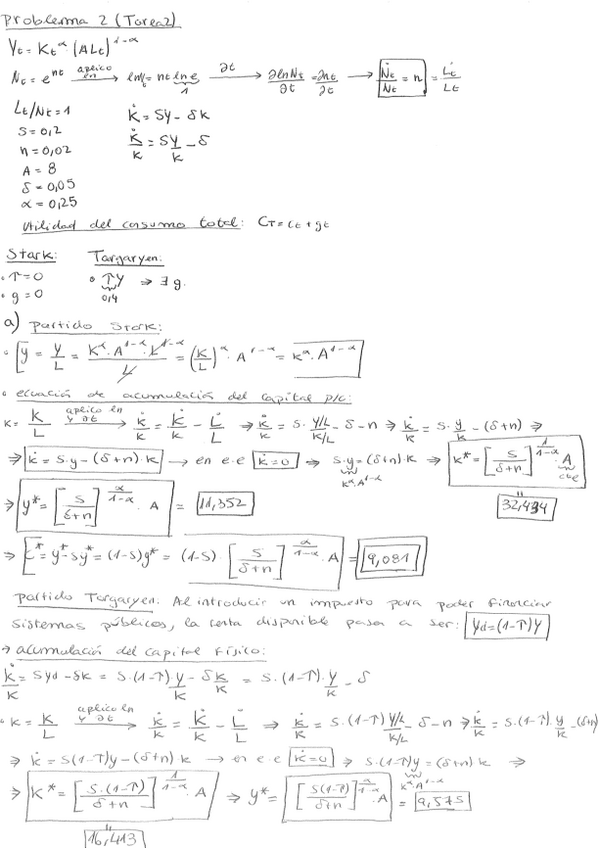 Problema 2 (Tarea 2)
Yt = Kt^α · (ALt)^1-α
Nt = e^nt aplico ln → ln Nt = nt ln e 1 ∂t → ∂lnNt/∂t = ∂nt/∂t → Ṅt/Nt = n = L̇t/Lt
Lt/Nt = 1 K̇ = SY - δK
s = 0,2 K̇/K = SY/K - δ
n = 0,02
A = 8
δ = 0,05
α = 0,25
Utilidad del consumo total: CT = ct + gt
Stark: Targaryen:
• τ = 0 • τY ⇒ ∃ g.
• g = 0 0,4
a) partido Stark:
• y = Y/L = K^α · A^1-α · L^1-α / L = (K/L)^α · A^1-α = k^α · A^1-α
• ecuación de acumulación del capital p/c:
k = K/L aplico ln y ∂t → k̇/k = K̇/K - L̇/L ⇒ k̇/k = s · Y/L / K/L - δ - n ⇒ k̇/k = s · y/k - (δ+n) ⇒
⇒ k̇ = s·y - (δ+n)·k → en e.e k̇=0 ⇒ s·y = (δ+n)·k ⇒ k* = [s/δ+n]^1/1-α · A
k^α A^1-α cte
⇒ y* = [s/δ+n]^α/1-α · A = 11,352 32,434
⇒ c* = y* - sy* = (1-s)y* = (1-s) · [s/δ+n]^α/1-α · A = 9,081
partido Targaryen: Al introducir un impuesto para poder financiar
sistemas públicos, la renta disponible pasa a ser: Yd = (1-τ)Y
→ acumulación del capital físico:
K̇/K = SYd - δK / K = S·(1-τ)·Y - δK / K = S·(1-τ)·Y/K - δ
• k = K/L aplico ln y ∂t → k̇/k = K̇/K - L̇/L ⇒ k̇/k = s·(1-τ) Y/L / K/L - δ - n ⇒ k̇/k = s·(1-τ)·y/k - (δ+n)
⇒ k̇ = s(1-τ)y - (δ+n)·k → en e.e k̇=0 ⇒ s·(1-τ)y = (δ+n)k ⇒
k^α A^1-α
⇒ k* = [s·(1-τ)/δ+n]^1/1-α · A ⇒ y* = [s(1-τ)/δ+n]^α/1-α · A = 9,575
16,413